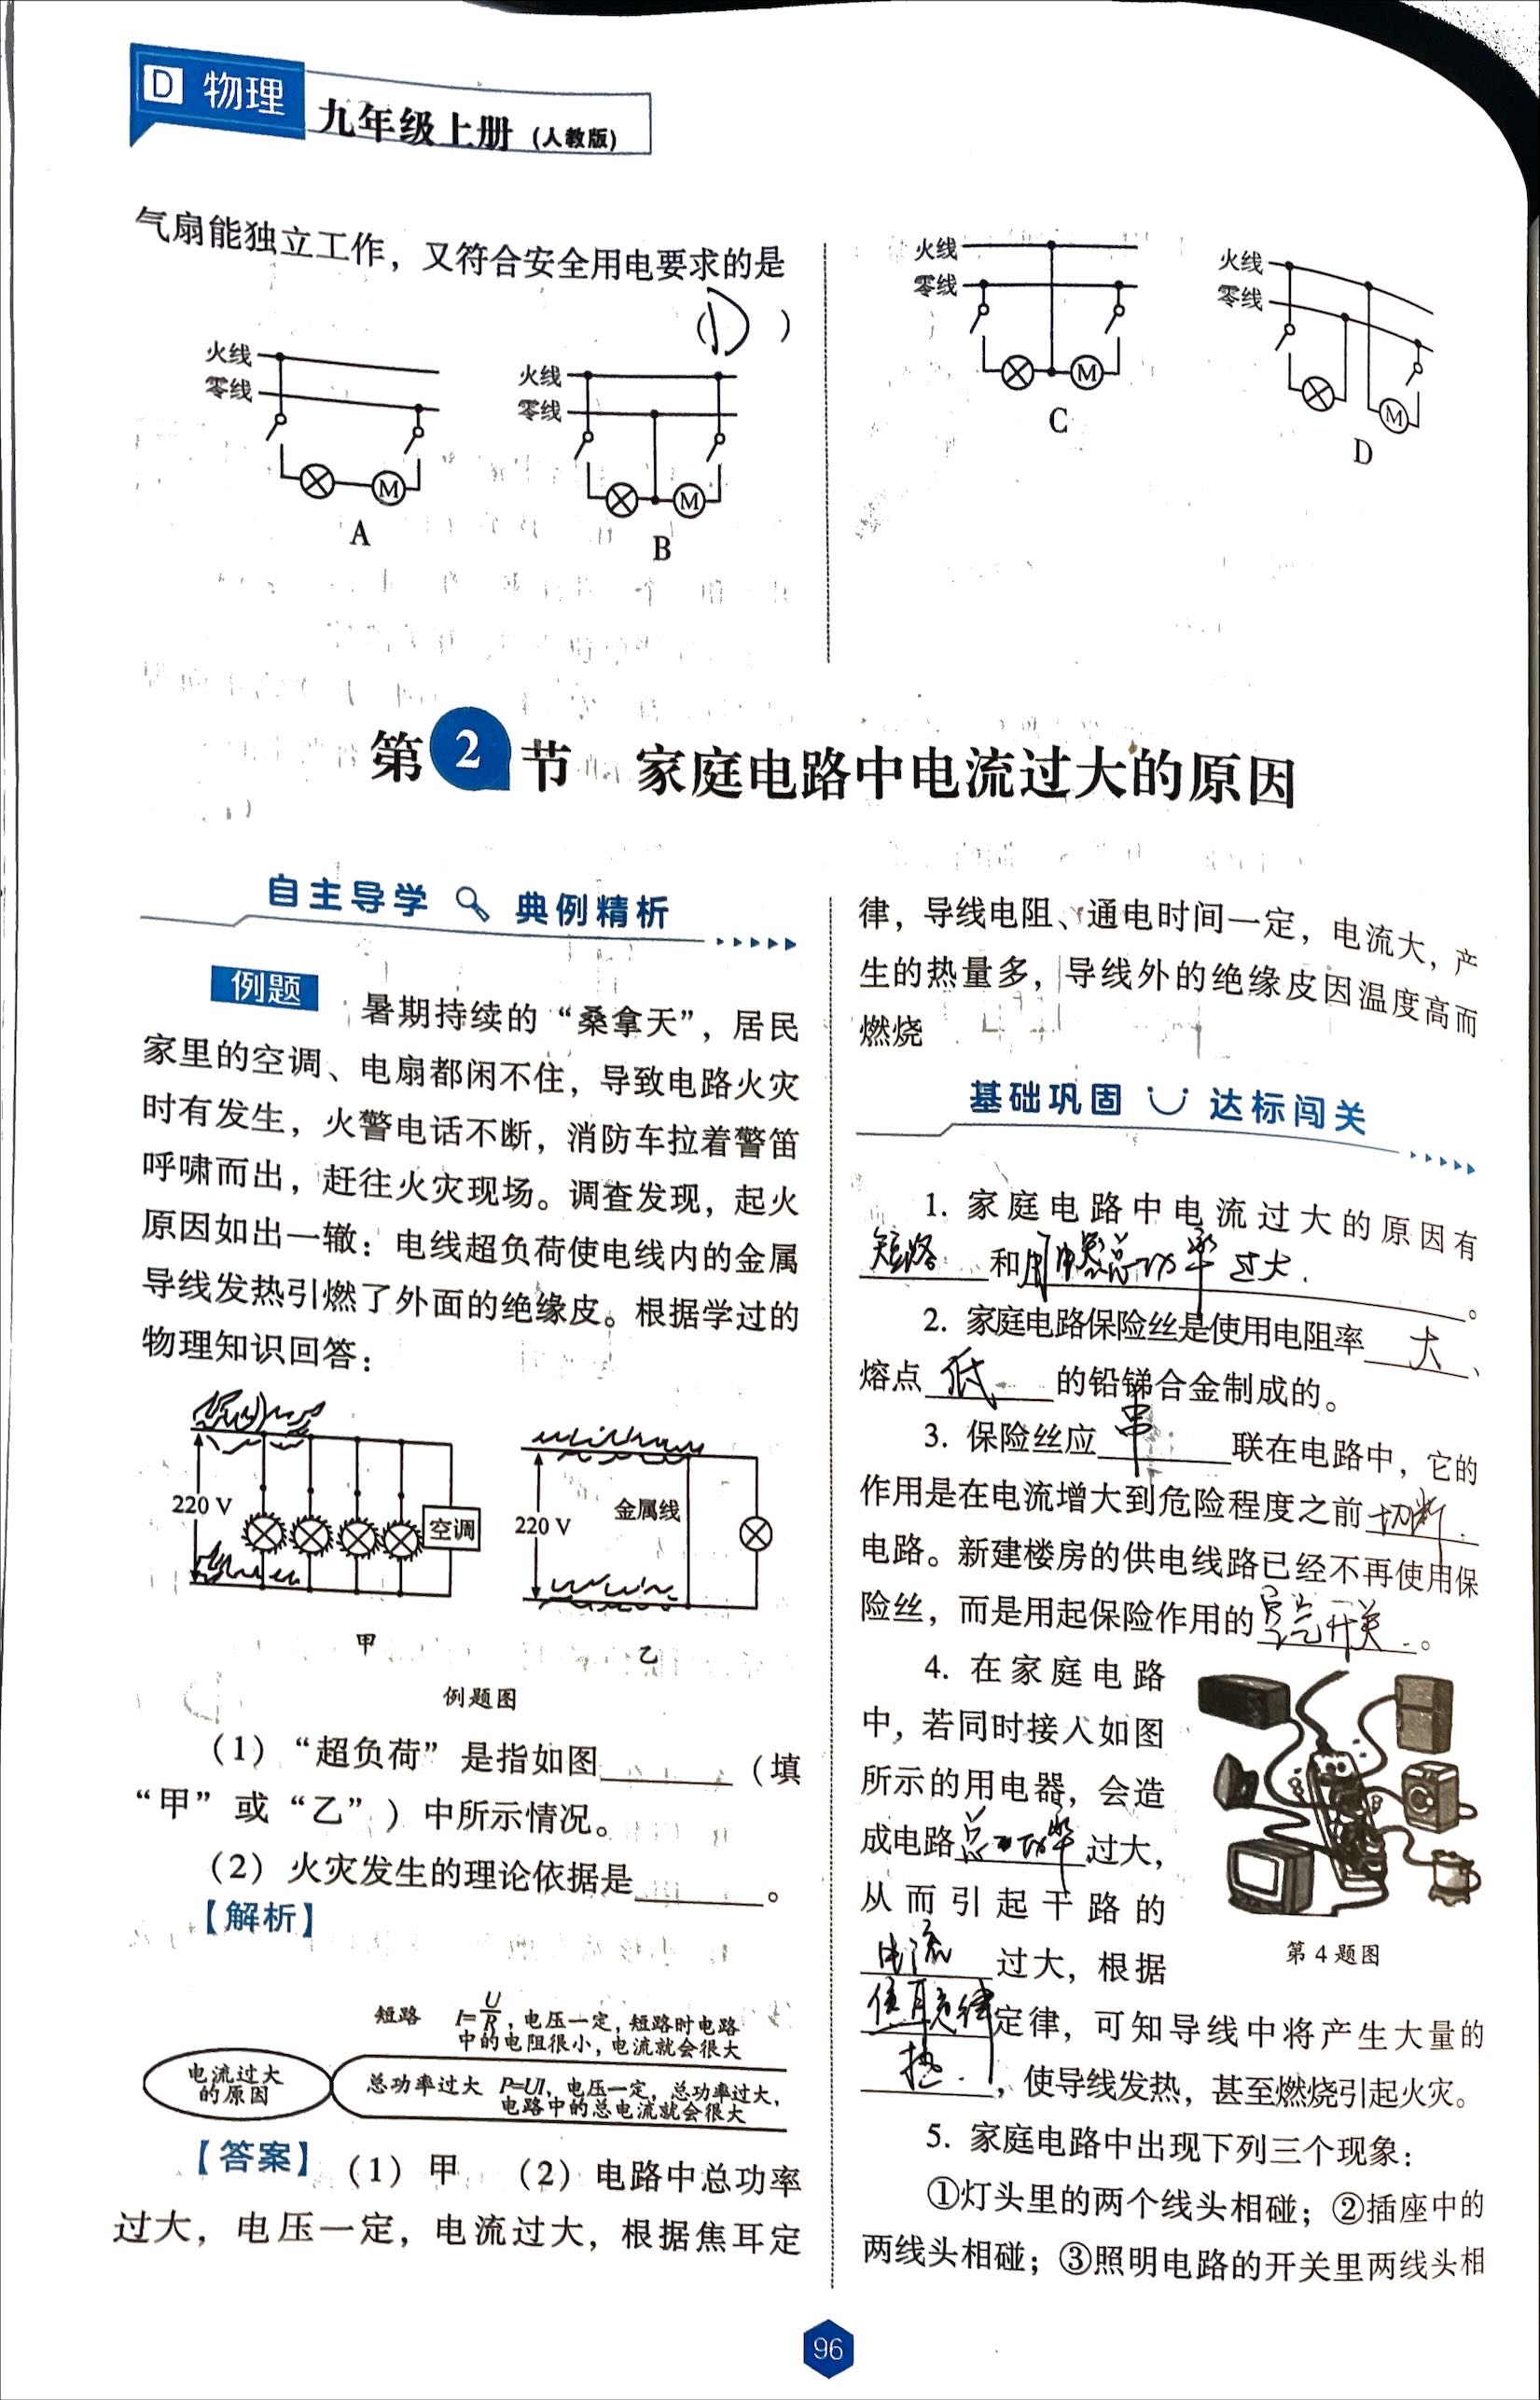 D 物理 九年级上册 (人教版)
气扇能独立工作，又符合安全用电要求的是
( D )
火线
零线
M
A
火线
零线
M
B
火线
零线
M
C
火线
零线
M
D
第2节 家庭电路中电流过大的原因
自主导学 典例精析
例题 暑期持续的“桑拿天”，居民
家里的空调、电扇都闲不住，导致电路火灾
时有发生，火警电话不断，消防车拉着警笛
呼啸而出，赶往火灾现场。调查发现，起火
原因如出一辙：电线超负荷使电线内的金属
导线发热引燃了外面的绝缘皮。根据学过的
物理知识回答：
220 V
空调
甲
220 V
金属线
乙
例题图
（1）“超负荷”是指如图______（填
“甲”或“乙”）中所示情况。
（2）火灾发生的理论依据是______。
【解析】
电流过大
的原因
短路 I=U/R，电压一定，短路时电路
中的电阻很小，电流就会很大
总功率过大 P=UI，电压一定，总功率过大，
电路中的总电流就会很大
【答案】（1）甲 （2）电路中总功率
过大，电压一定，电流过大，根据焦耳定
律，导线电阻、通电时间一定，电流大，产
生的热量多，导线外的绝缘皮因温度高而
燃烧
基础巩固 达标闯关
1. 家庭电路中电流过大的原因有
短路 和 用电器总功率过大.。
2. 家庭电路保险丝是使用电阻率 大 、
熔点 低 的铅锑合金制成的。
3. 保险丝应 串 联在电路中，它的
作用是在电流增大到危险程度之前 切断.
电路。新建楼房的供电线路已经不再使用保
险丝，而是用起保险作用的 空气开关.。
4. 在家庭电路
中，若同时接入如图
所示的用电器，会造
成电路 总功率 过大，
从而引起干路的
电流 过大，根据
焦耳定律 定律，可知导线中将产生大量的
热.，使导线发热，甚至燃烧引起火灾。
第 4 题图
5. 家庭电路中出现下列三个现象：
①灯头里的两个线头相碰；②插座中的
两线头相碰；③照明电路的开关里两线头相
96